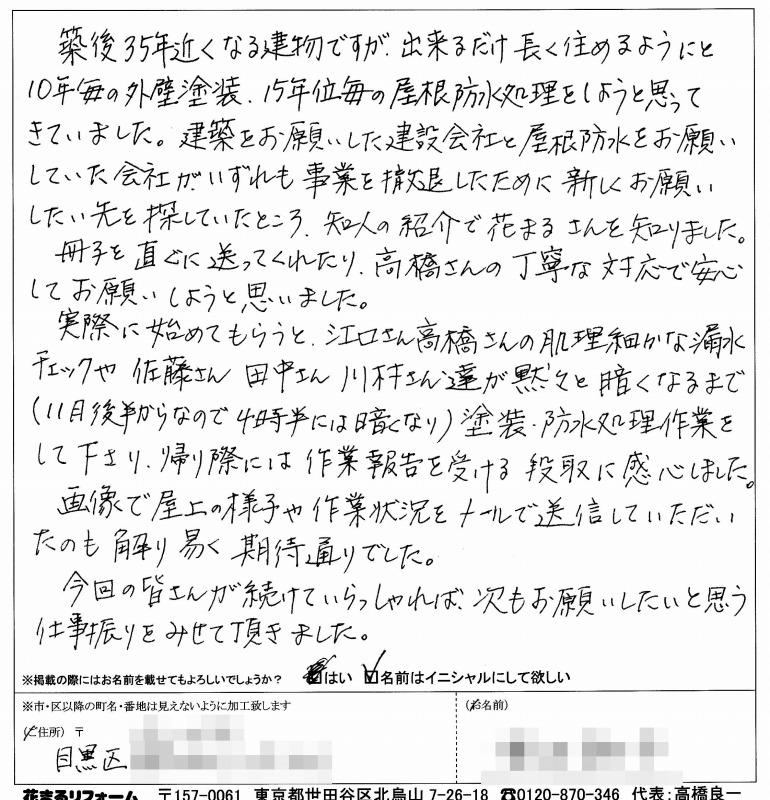 築後35年近くなる建物ですが、出来るだけ長く住めるようにと
10年毎の外壁塗装、15年位毎の屋根防水処理をしようと思って
きていました。建築をお願いした建設会社と屋根防水をお願い
していた会社がいずれも事業を撤退したために新しくお願い
したい先を探していたところ、知人の紹介で花まるさんを知りました。
冊子を直ぐに送ってくれたり、高橋さんの丁寧な対応で安心
してお願いしようと思いました。
実際に始めてもらうと、江口さん高橋さんの肌理細かな漏水
チェックや 佐藤さん 田中さん 川村さん達が黙々と暗くなるまで
(11月後半からなので4時半には暗くなり)塗装・防水処理作業を
して下さり、帰り際には作業報告を受ける段取に感心しました。
画像で屋上の様子や作業状況をメールで送信していただい
たのも解り易く期待通りでした。
今回の皆さんが続けていらっしゃれば、次もお願いしたいと思う
仕事振りをみせて頂きました。
※掲載の際にはお名前を載せてもよろしいでしょうか? はい 名前はイニシャルにして欲しい
※市・区以降の町名・番地は見えないように加工致します
(ご住所) 〒
(お名前)
目黒区
花まるリフォーム 〒157-0061 東京都世田谷区北烏山 7-26-18 ☎0120-870-346 代表:高橋良一